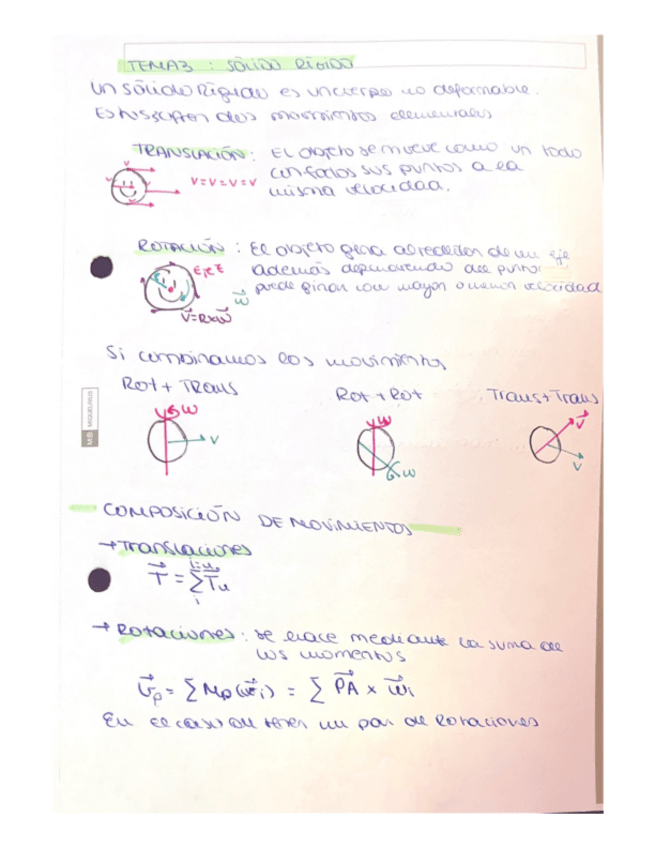 TEMA3 : SÓLIDO RÍGIDO
Un sólido Rígido es un cuerpo no deformable.
Existen dos movimientos elementales
TRANSLACIÓN: El objeto se mueve como un todo
con todos sus puntos a la
misma velocidad.
V
V=V=V=V
ROTACIÓN : El objeto gira alrededor de un eje
además dependiendo del punto
puede girar con mayor o menor velocidad
EJE
w⃗
V⃗=Rxw⃗
Si combinamos los movimientos
Rot + Trans
Rot + Rot
Trans+Trans
w
V
w
w
V⃗
V
MB MIQUELRIUS
COMPOSICIÓN DE MOVIMIENTOS
→Translaciones
T⃗ = Σ T⃗
→ Rotaciones: se hace mediante la suma de
los momentos
V⃗p = Σ Mp(w⃗i) = Σ PA⃗ x w⃗i
En el caso de tener un par de Rotaciones